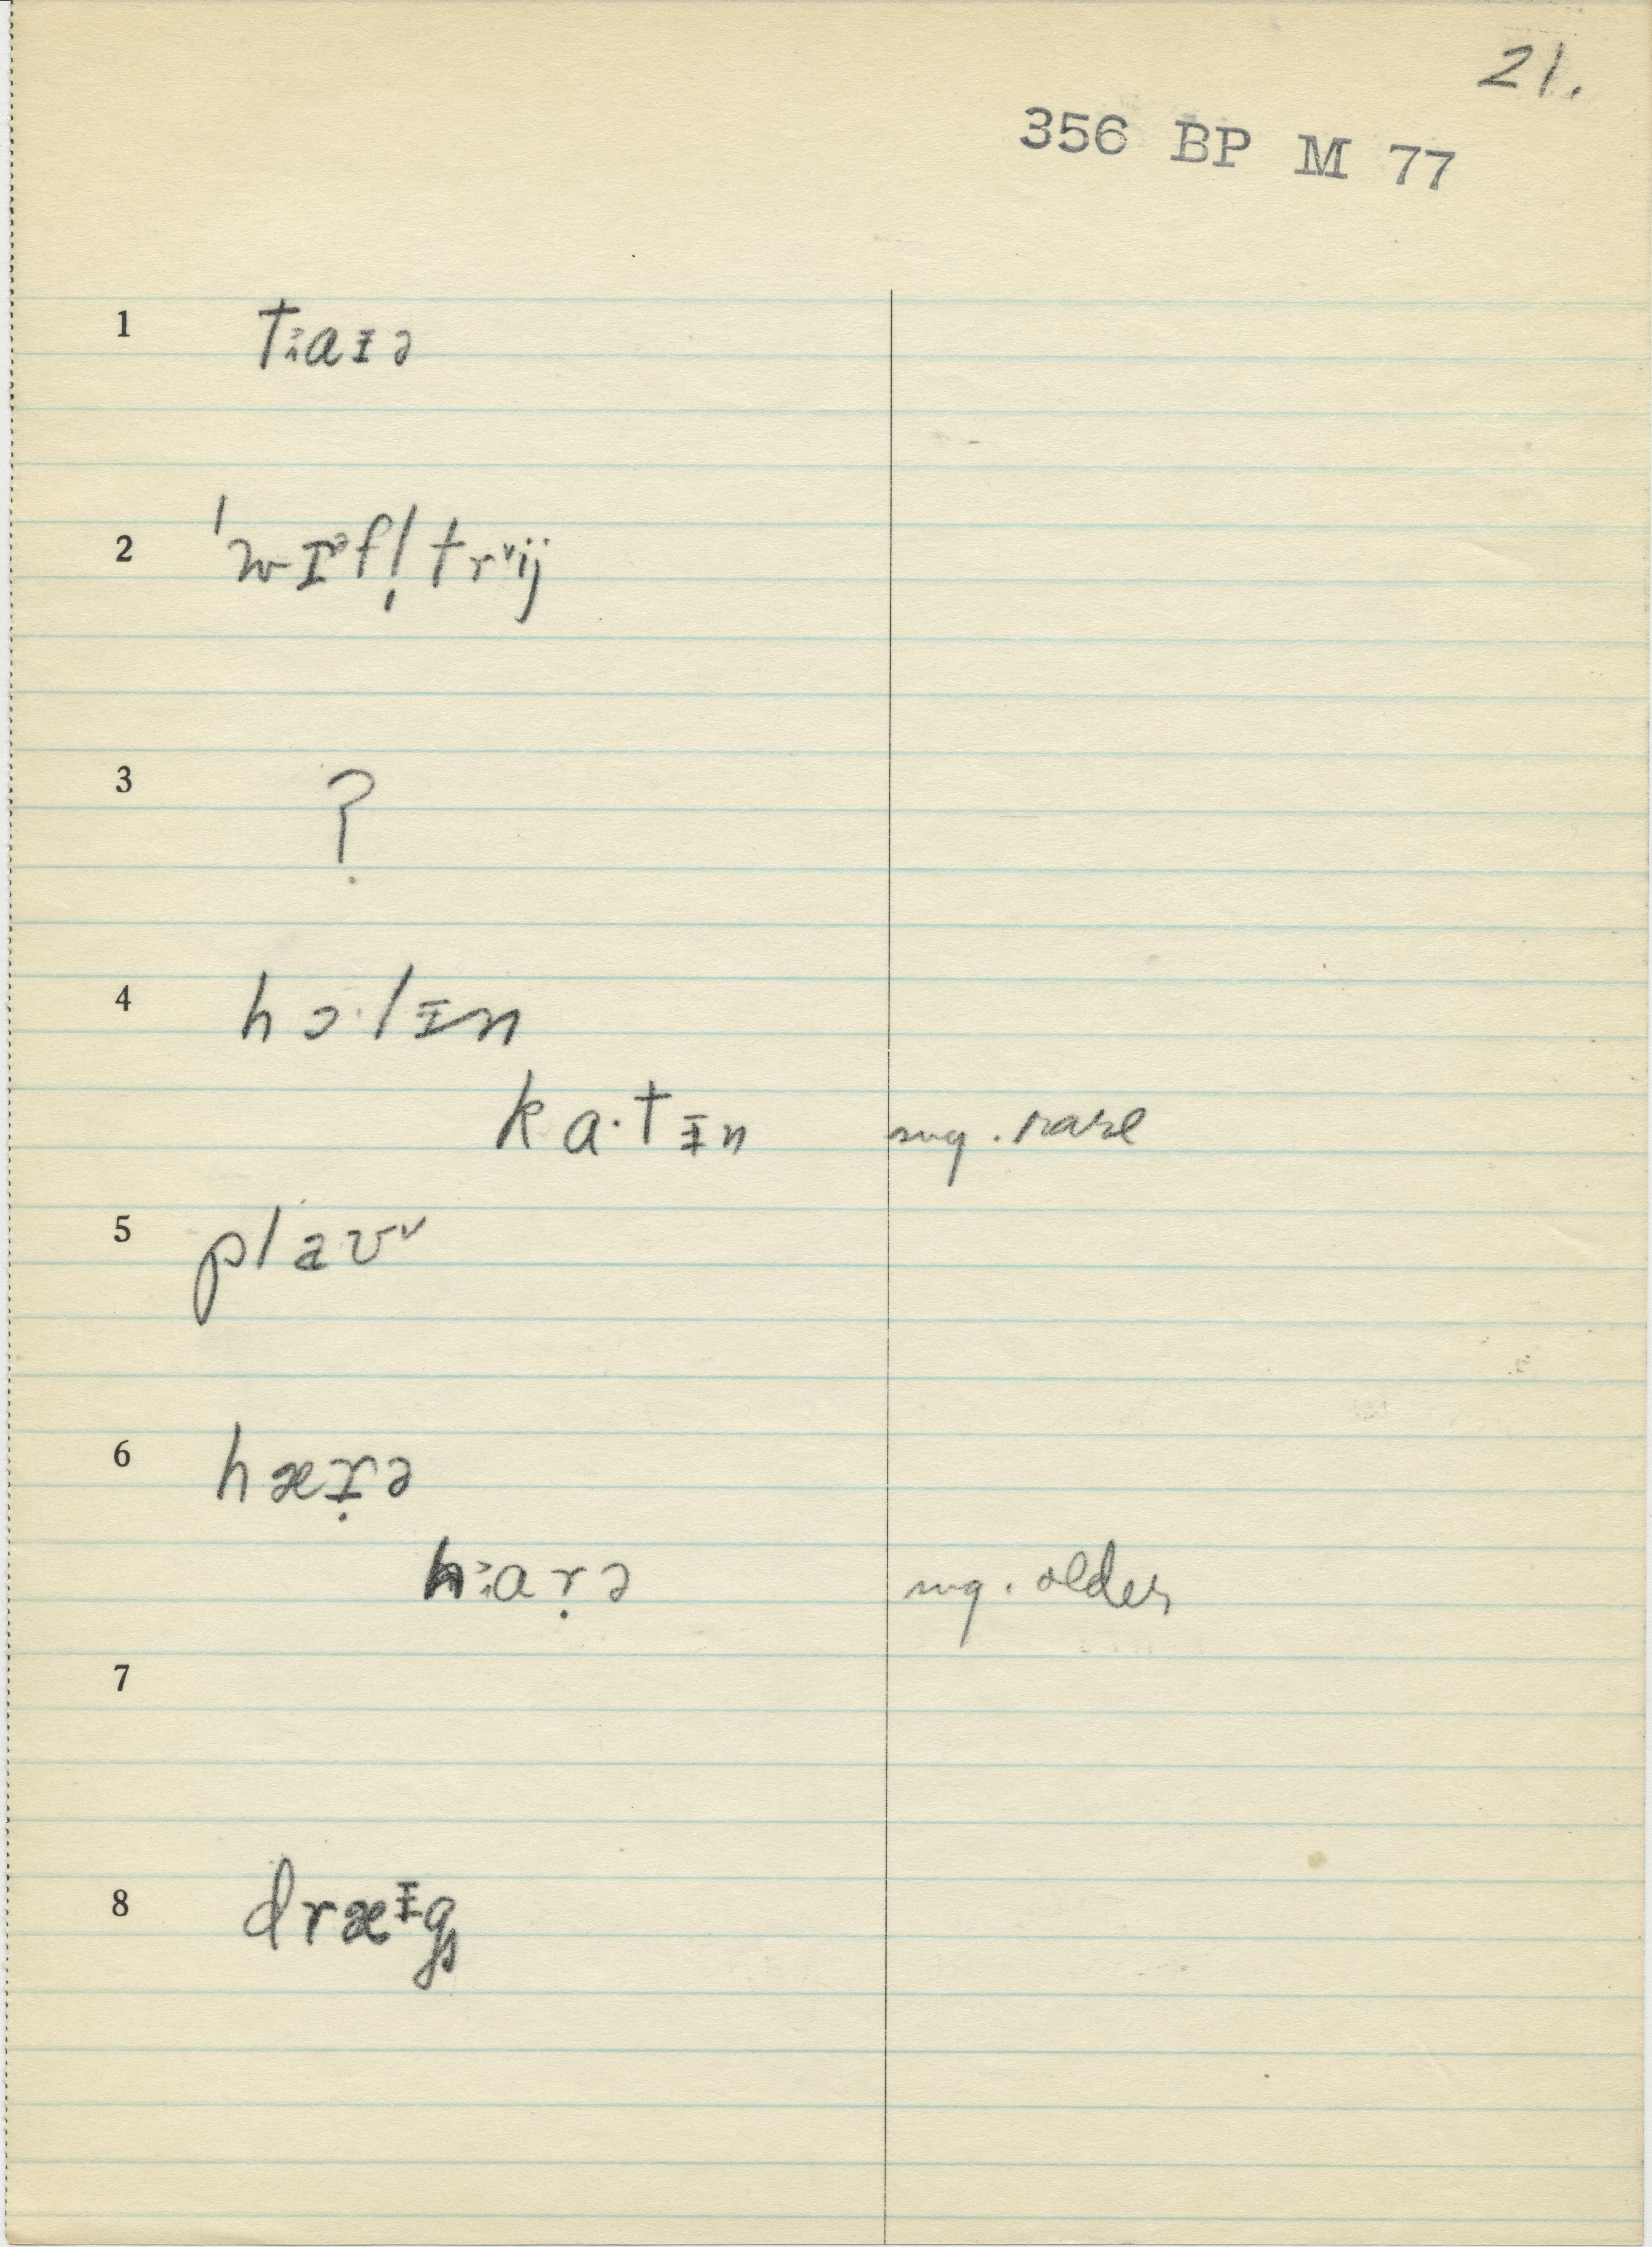 21.
356 BP M 77
1 tɜaᵻə
2 ˈwɪᵊfl̩trᵛij
3 ?
4 hɔ·lᵻn
ka·tᵻn sug. rare
5 plaʊᵛ
6 hæɪ̣ə
hɜaṛə sug. older
7
8 dræᵻgs